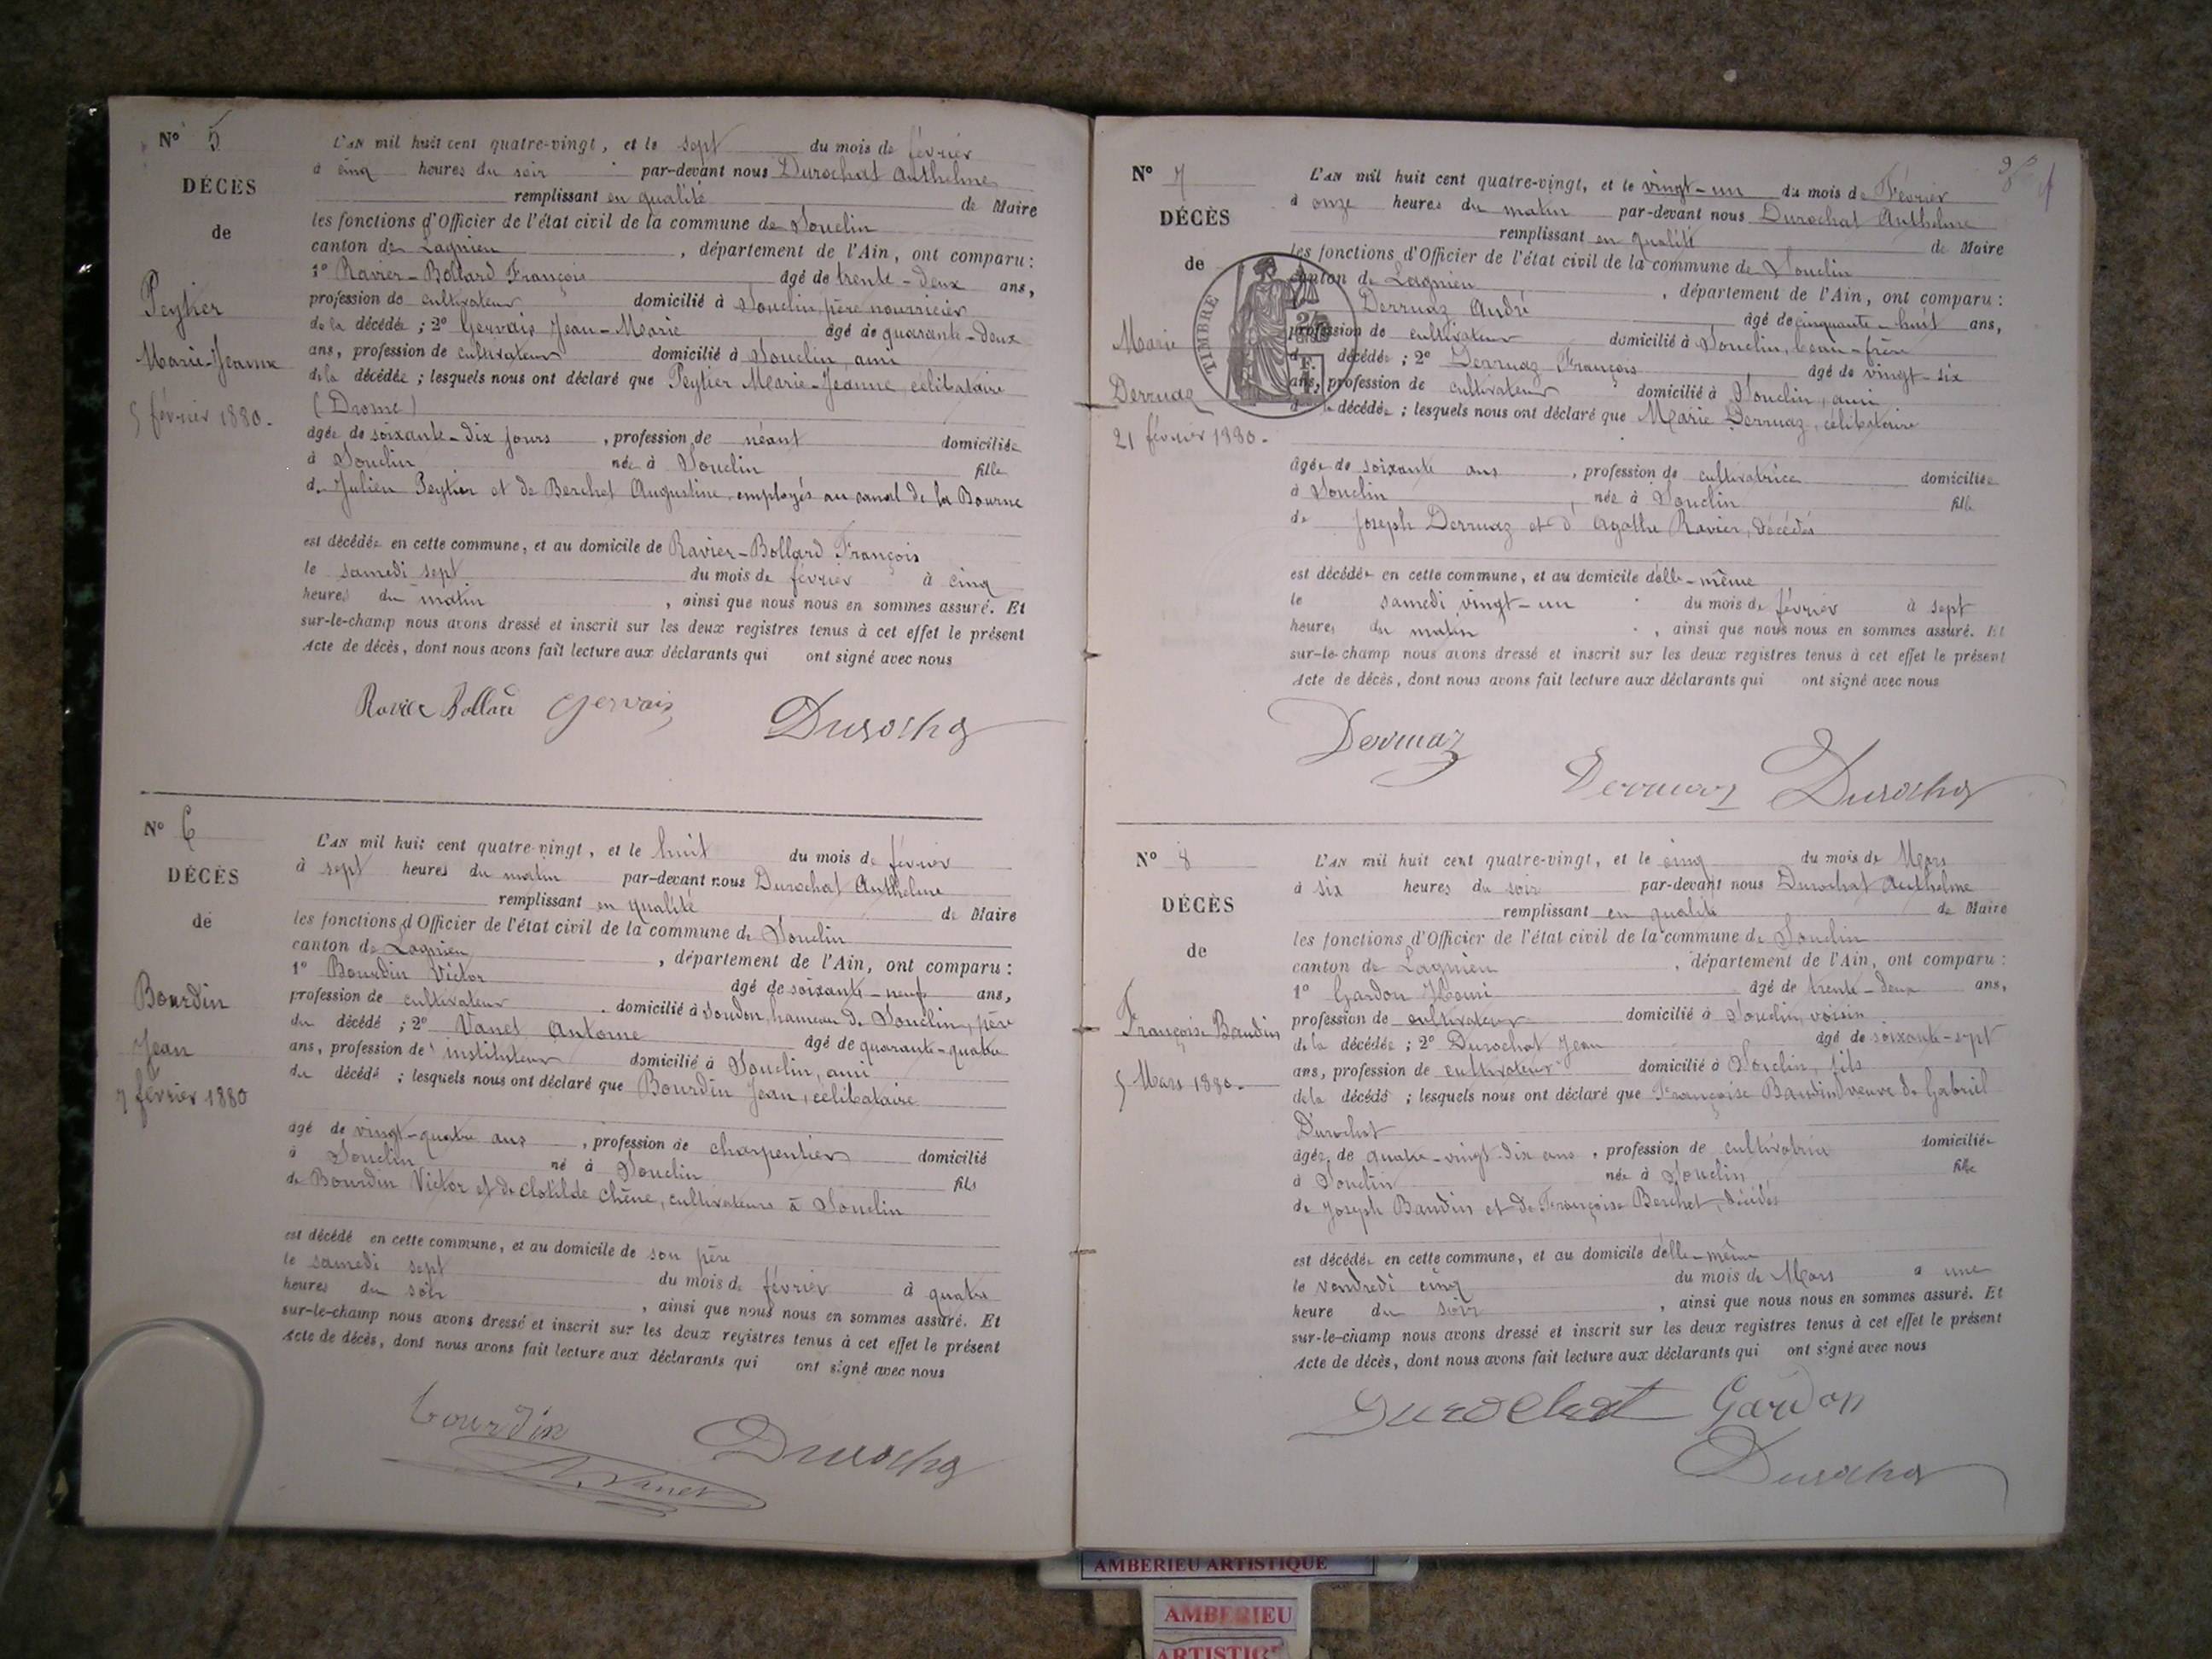 N° 5
DÉCÈS
de
Peytier
Marie-Jeanne
5 février 1880.
L'AN mil huit cent quatre-vingt, et le sept du mois de février
à cinq heures du soir par-devant nous Durochat Anthelme
remplissant en qualité de Maire
les fonctions d'Officier de l'état civil de la commune de Souclin
canton de Lagnieu, département de l'Ain, ont comparu :
1° Ravier-Bollard François âgé de trente-deux ans,
profession de cultivateur domicilié à Souclin, père nourricier
de la décédée ; 2° Gervais Jean-Marie âgé de quarante-deux
ans, profession de cultivateur domicilié à Souclin, ami
de la décédée ; lesquels nous ont déclaré que Peytier Marie-Jeanne, célibataire
(Drome)
âgée de soixante-dix jours, profession de néant domiciliée
à Souclin née à Souclin fille
de Julien Peytier et de Berchet Augustine, employés au canal de la Bourne
est décédée en cette commune, et au domicile de Ravier-Bollard François
le samedi sept du mois de février à cinq
heures du matin, ainsi que nous nous en sommes assuré. Et
sur-le-champ nous avons dressé et inscrit sur les deux registres tenus à cet effet le présent
Acte de décès, dont nous avons fait lecture aux déclarants qui ont signé avec nous
Ravier Bollard Gervais Durochat
N° 6
DÉCÈS
de
Bourdin
Jean
7 février 1880
L'AN mil huit cent quatre-vingt, et le huit du mois de février
à sept heures du matin par-devant nous Durochat Anthelme
remplissant en qualité de Maire
les fonctions d'Officier de l'état civil de la commune de Souclin
canton de Lagnieu, département de l'Ain, ont comparu :
1° Bourdin Victor âgé de soixante-neuf ans,
profession de cultivateur domicilié à Soudon, hameau de Souclin, père
du décédé ; 2° Vanel Antoine âgé de quarante-quatre
ans, profession de instituteur domicilié à Souclin, ami
du décédé ; lesquels nous ont déclaré que Bourdin Jean, célibataire
âgé de vingt-quatre ans, profession de charpentier domicilié
à Souclin né à Souclin fils
de Bourdin Victor et de Clotilde Chêne, cultivateurs à Souclin
est décédé en cette commune, et au domicile de son père
le samedi sept du mois de février à quatre
heures du soir, ainsi que nous nous en sommes assuré. Et
sur-le-champ nous avons dressé et inscrit sur les deux registres tenus à cet effet le présent
Acte de décès, dont nous avons fait lecture aux déclarants qui ont signé avec nous
Bourdin Durochat
A. Vanel
N° 7
DÉCÈS
de
Marie
Derruaz
21 février 1880.
TIMBRE
L'AN mil huit cent quatre-vingt, et le vingt-un du mois de Février
à onze heures du matin par-devant nous Durochat Anthelme
remplissant en qualité de Maire
les fonctions d'Officier de l'état civil de la commune de Souclin
canton de Lagnieu, département de l'Ain, ont comparu :
Derruaz André âgé de cinquante-huit ans,
profession de cultivateur domicilié à Souclin, beau-frère
décédée ; 2° Derruaz François âgé de vingt-six
ans, profession de cultivateur domicilié à Souclin, ami
décédée ; lesquels nous ont déclaré que Marie Derruaz, célibataire
âgée de soixante ans, profession de cultivatrice domiciliée
à Souclin, née à Souclin fille
de Joseph Derruaz et d'Agathe Ravier, décédés
est décédée en cette commune, et au domicile d'elle-même
le samedi vingt-un du mois de février à sept
heures du matin, ainsi que nous nous en sommes assuré. Et
sur-le-champ nous avons dressé et inscrit sur les deux registres tenus à cet effet le présent
Acte de décès, dont nous avons fait lecture aux déclarants qui ont signé avec nous
Derruaz
Derruaz Durochat
N° 8
DÉCÈS
de
Françoise Baudin
5 Mars 1880.
L'AN mil huit cent quatre-vingt, et le cinq du mois de Mars
à six heures du soir par-devant nous Durochat Anthelme
remplissant en qualité de Maire
les fonctions d'Officier de l'état civil de la commune de Souclin
canton de Lagnieu, département de l'Ain, ont comparu :
1° Gardon Henri âgé de trente-deux ans,
profession de cultivateur domicilié à Souclin, voisin
de la décédée ; 2° Durochat Jean âgé de soixante-sept
ans, profession de cultivateur domicilié à Souclin, fils
de la décédé ; lesquels nous ont déclaré que Françoise Baudin veuve de Gabriel
Durochat
âgée de quatre-vingt-dix ans, profession de cultivatrice domiciliée
à Souclin née à Souclin fille
de Joseph Baudin et de Françoise Berchet, décédés
est décédée en cette commune, et au domicile d'elle-même
le vendredi cinq du mois de Mars à une
heure du soir, ainsi que nous nous en sommes assuré. Et
sur-le-champ nous avons dressé et inscrit sur les deux registres tenus à cet effet le présent
Acte de décès, dont nous avons fait lecture aux déclarants qui ont signé avec nous
Durochat Gardon
Durochat
AMBERIEU ARTISTIQUE
AMBERIEU
ARTISTIQUE